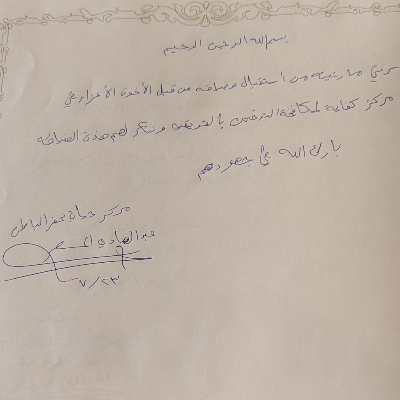 بسم الله الرحمن الرحيم
سرني ما رأيته من استقبال وضيافه من قبل الأخوة الأعزاء في
مركز كفاية لمكافحة التدخين بالخرج ونشكر لهم هذه الضيافه
بارك الله في جهودهم
مركز حفر الباطن
عبدالهادي
٧/٢٣